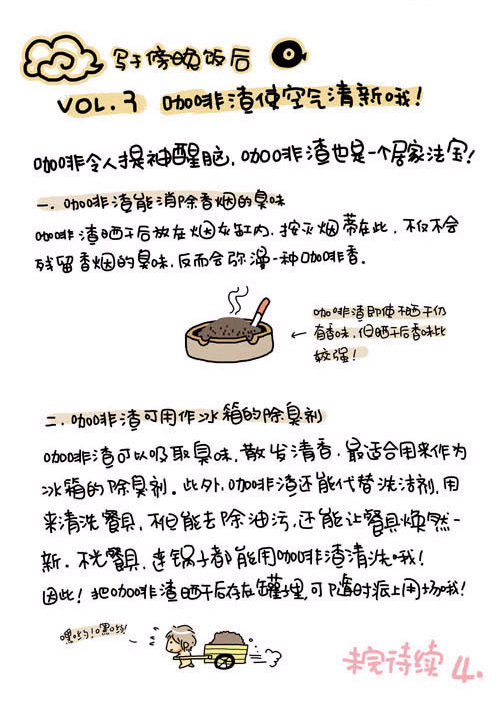 写于傍晚饭后
VOL.3 咖啡渣使空气清新哦!
咖啡令人提神醒脑,咖啡渣也是一个居家法宝!
一.咖啡渣能消除香烟的臭味
咖啡渣晒干后放在烟灰缸内.按灭烟蒂在此.不仅不会
残留香烟的臭味.反而会弥漫一种咖啡香.
咖啡渣即使不晒干仍
有香味,但晒干后香味比
较强!
二.咖啡渣可用作冰箱的除臭剂
咖啡渣可以吸取臭味,散发清香.最适合用来作为
冰箱的除臭剂。此外,咖啡渣还能代替洗洁剂,用
来清洗餐具,不但能去除油污,还能让餐具焕然一
新.不光餐具,连锅子都能用咖啡渣清洗哦!
因此!把咖啡渣晒干后存在罐子里,可随时派上用场哦!
嘿哟!嘿哟!
未完待续 4.